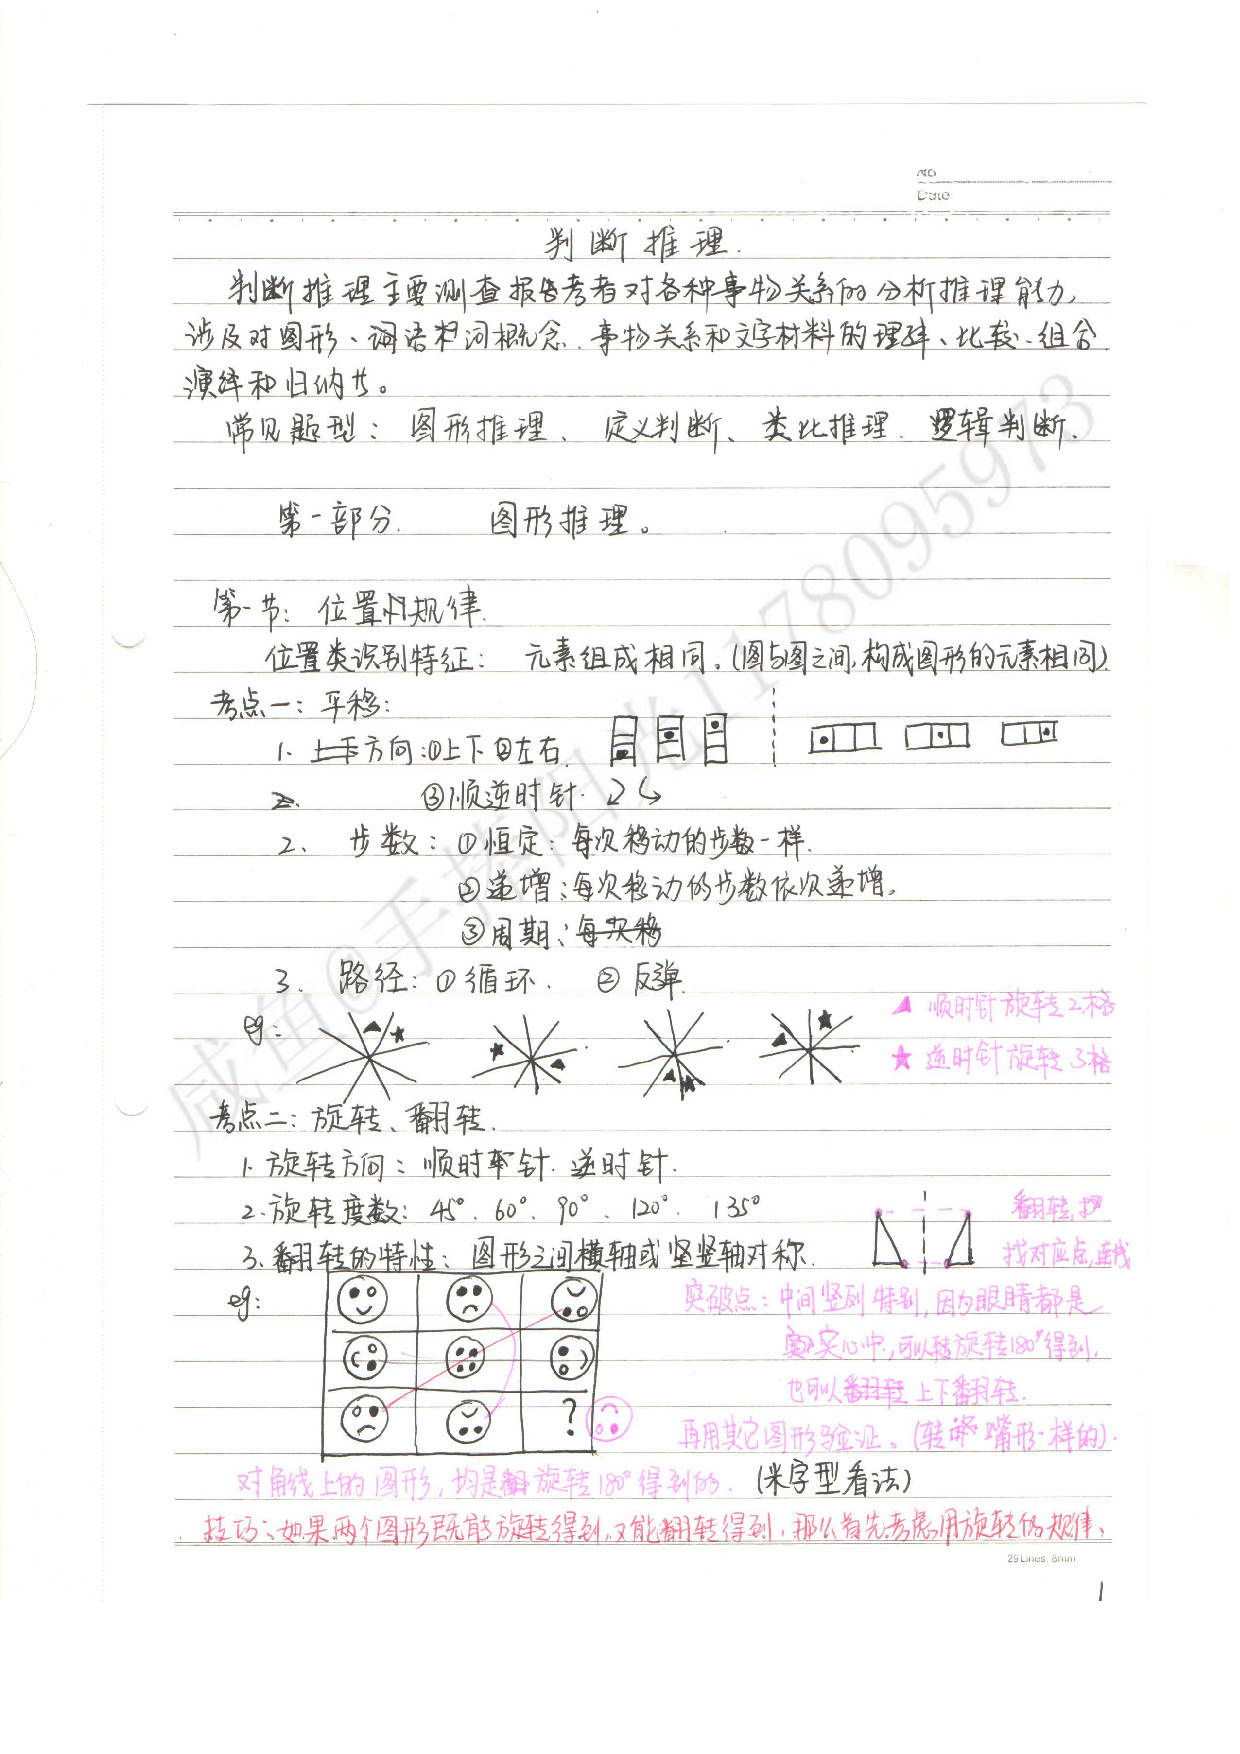 NO
Date
判断推理.
判断推理主要测查报告考者对各种事物关系的分析推理能力,
涉及对图形、词语和词概念、事物关系和文字材料的理解、比较、组合
演绎和归纳长。
常见题型：图形推理、定义判断、类比推理、逻辑判断.
第一部分. 图形推理。
第一节：位置规律.
位置类识别特征： 元素组成相同。(图与图之间,构成图形的元素相同)
考点一：平移：
1. 方向：①上下②左右.
2. ③顺逆时针.
2、 步数：①恒定：每次移动的步数一样.
②递增：每次移动的步数依次递增。
③周期：每次移
3、 路径：①循环. ②反弹.
eg:
▲ 顺时针旋转2格
★ 逆时针旋转3格
考点二：旋转、翻转.
1. 旋转方向：顺时针. 逆时针.
2.旋转度数：45°、60°、90°、120°、135°
翻转,找
3.翻转的特性：图形之间横轴或竖竖轴对称.
找对应点,连线
eg:
?
突破点：中间竖列特别,因为眼睛都是
实心中,可以转旋转180°得到.
也可以翻转上下翻转.
再用其它图形验证。(转 嘴形一样的).
对角线上的图形,均是翻旋转180°得到的. (米字型看法)
技巧：如果两个图形既能旋转得到,又能翻转得到,那么首先考虑用旋转的规律、
29Lines, 8mm
1
咸鱼@手捧阳光1178095973